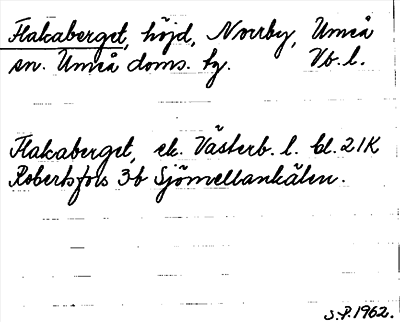 Flakaberget, höjd, Norrby, Umeå
sn. Umeå doms. tg. Vb. l.
Flakaberget, ek. Västerb. l. bl. 21K
Robertsfors 3b Sjömellankälen.
S.P. 1962.